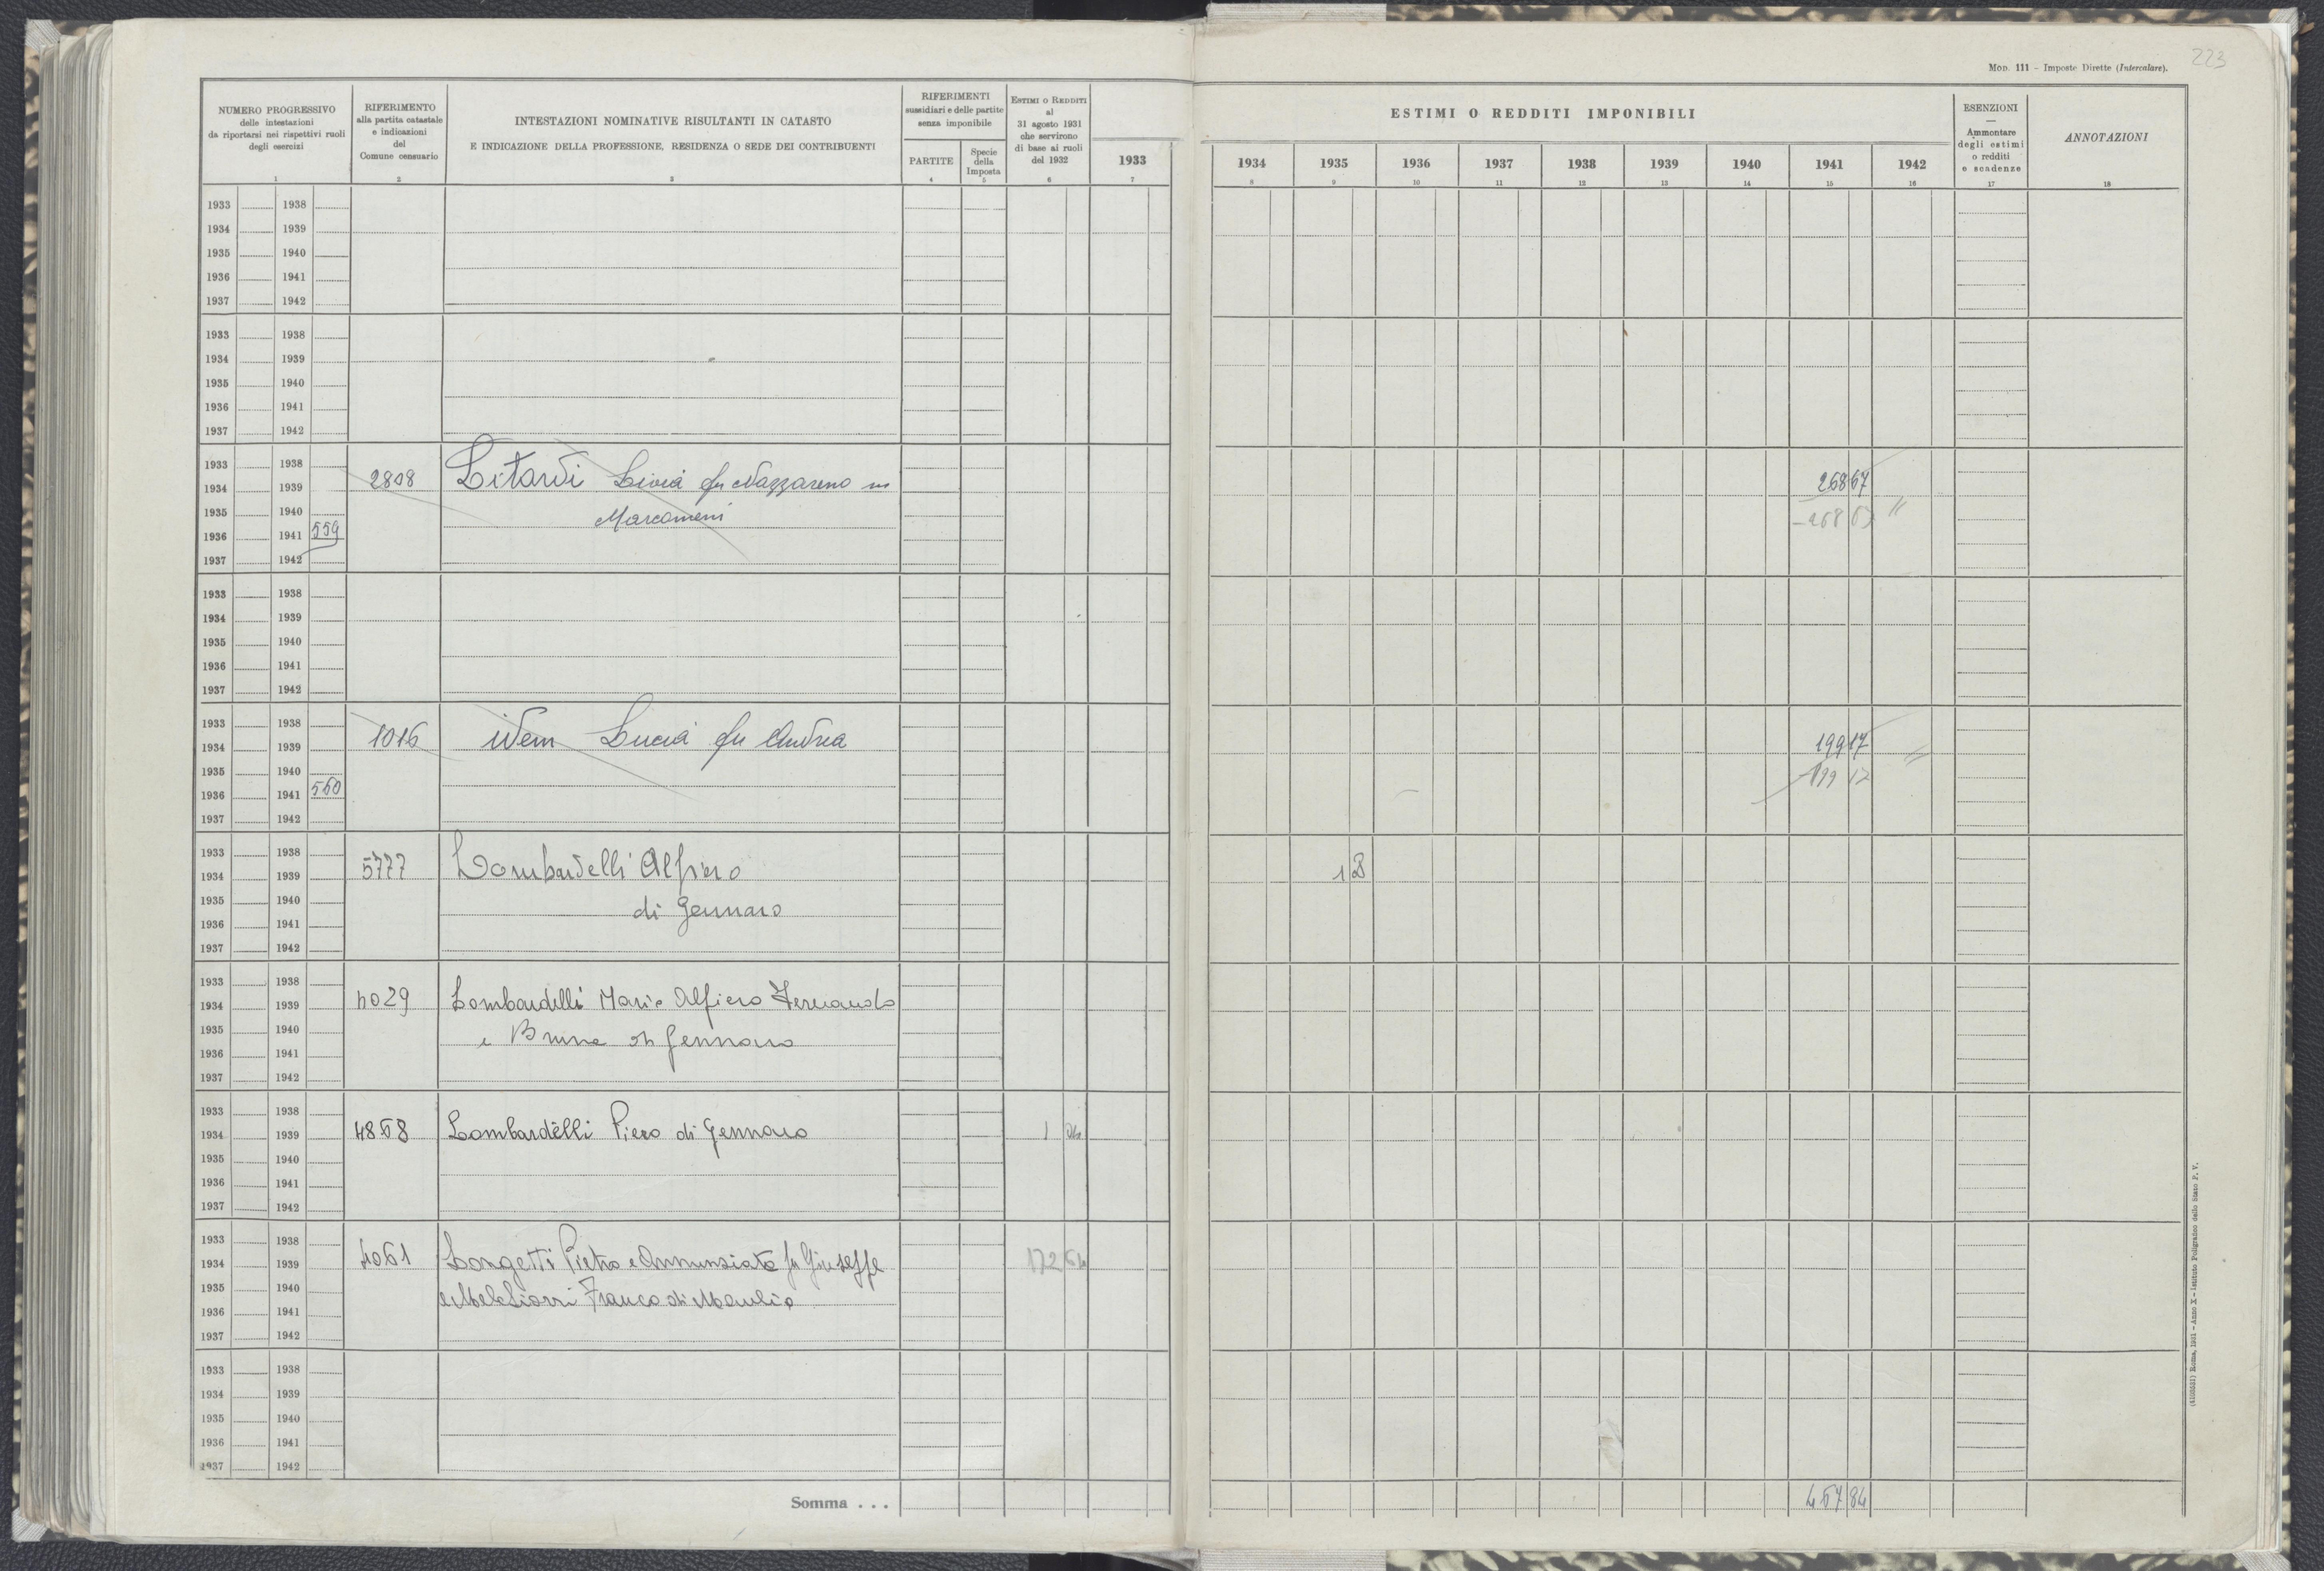 223
Mod. 111 – Imposte Dirette (Intercalare).
NUMERO PROGRESSIVO
delle intestazioni
da riportarsi nei rispettivi ruoli
degli esercizi
1
RIFERIMENTO
alla partita catastale
e indicazioni
del
Comune censuario
2
INTESTAZIONI NOMINATIVE RISULTANTI IN CATASTO
E INDICAZIONE DELLA PROFESSIONE, RESIDENZA O SEDE DEI CONTRIBUENTI
3
RIFERIMENTI
sussidiari e delle partite
senza imponibile
PARTITE
4
Specie
della
Imposta
5
ESTIMI O REDDITI
al
31 agosto 1931
che servirono
di base ai ruoli
del 1932
6
1933
7
ESTIMI O REDDITI IMPONIBILI
1934 1935 1936 1937 1938 1939 1940 1941 1942
8 9 10 11 12 13 14 15 16
ESENZIONI
—
Ammontare
degli estimi
o redditi
e scadenze
17
ANNOTAZIONI
18
1933 1938
1934 1939
1935 1940
1936 1941
1937 1942
1933 1938
1934 1939
1935 1940
1936 1941
1937 1942
1933 1938
1934 1939 2808 Litardi Livia fu Nazzareno in 268 67
1935 1940 Marcomeni - 268 67 "
1936 1941 559
1937 1942
1933 1938
1934 1939
1935 1940
1936 1941
1937 1942
1933 1938
1934 1939 1016 idem Lucia fu Andrea 199 17 "
1935 1940 - 199 17
1936 1941 560
1937 1942
1933 1938
1934 1939 5777 Lombardelli Alfiero 1
1935 1940 di Gennaro
1936 1941
1937 1942
1933 1938
1934 1939 4029 Lombardelli Mario Alfiero Fernando
1935 1940 e Bruna di Gennaro
1936 1941
1937 1942
1933 1938
1934 1939 4868 Lombardelli Piero di Gennaro 1
1935 1940
1936 1941
1937 1942
1933 1938
1934 1939 4061 Longetti Pietro e Annunziata fu Giuseppe 172 64
1935 1940 e Melchiorri Franco di Manlio
1936 1941
1937 1942
1933 1938
1934 1939
1935 1940
1936 1941
1937 1942
Somma . . . 467 84
(4105531) Roma, 1931 - Anno X - Istituto Poligrafico dello Stato P. V.